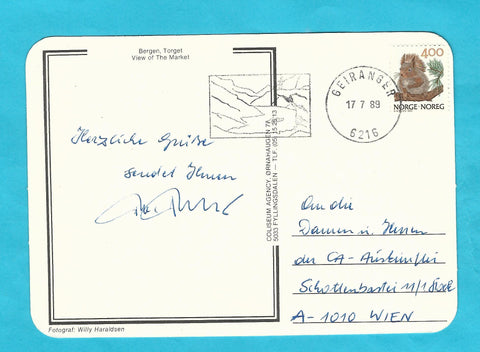 Bergen, Torget
View of The Market
400
NORGE NOREG
GEIRANGER
17 7 89
6216
Herzliche Grüße
sendet Ihnen
COLISEUM AGENCY, ØRNAHAUGEN 7A
5033 FYLLINGSDALEN — TLF. (05) 15 26 13
An die
Damen u. Herren
der CA-Auskunftei
Schottenbastei 11/1. Stock
A-1010 WIEN
Fotograf: Willy Haraldsen